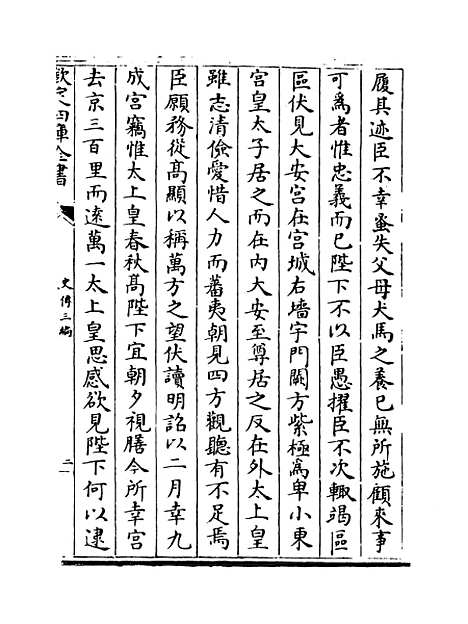 履其迹臣不幸蚤失父母犬馬之養已無所施顧來事
可爲者惟忠義而已陛下不以臣愚擢臣不次輙竭區
區伏見大安宮在宮城右墻宇門闕方紫極爲卑小東
宮皇太子居之而在内大安至尊居之反在外太上皇
雖志清儉愛惜人力而蕃夷朝見四方觀聽有不足焉
臣願務從髙顯以稱萬方之望伏讀明詔以二月幸九
成宮竊惟太上皇春秋髙陛下宜朝夕視膳今所幸宮
去京三百里而逺萬一太上皇思感欲見陛下何以逮
欽定四庫全書
史傳三編
二